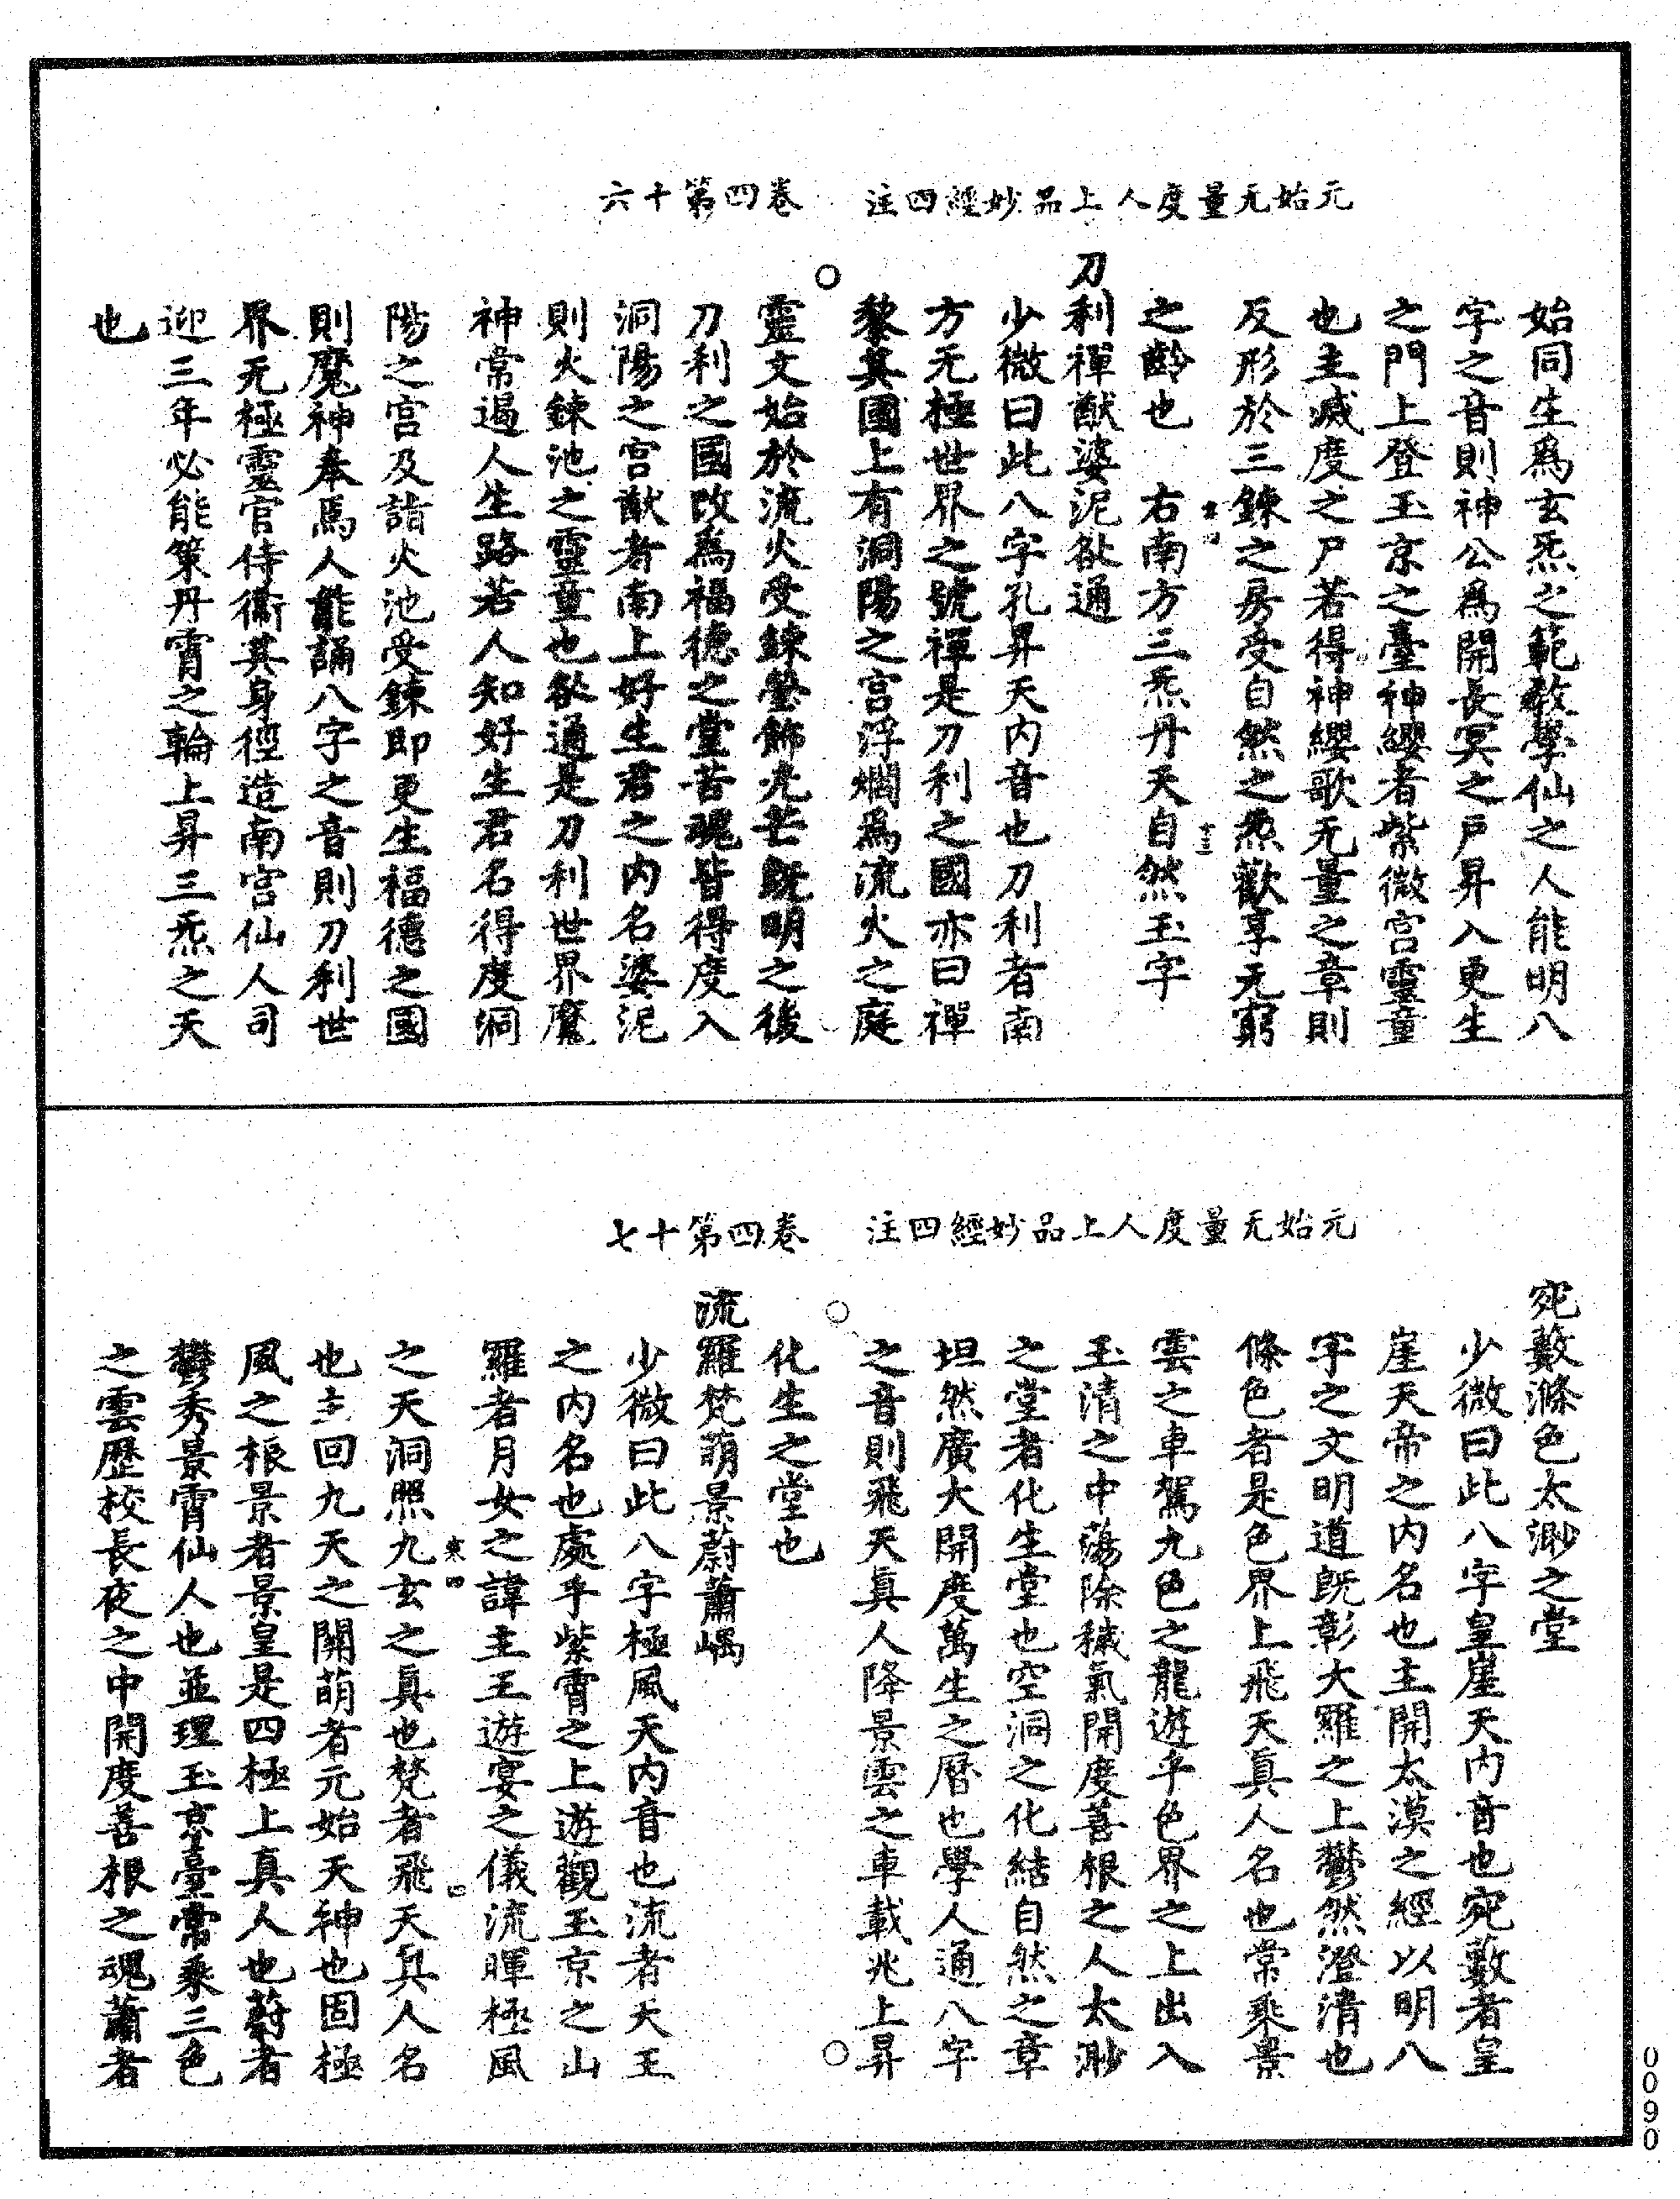 元始无量度人上品妙經四注　卷四第十六
始同生爲玄炁之範教學仙之人能明八
字之音則神公爲開長冥之戶昇入更生
之門上登玉京之臺神纓者紫微宮靈童
也主滅度之尸若得神纓歌无量之章則
反形於三鍊之房受自然之炁歡享无窮
之齡也　右南方三炁丹天自然玉字
刀利禪猷婆泥咎通
少微曰此八字孔昇天内音也刀利者南
方无極世界之號禪是刀利之國亦曰禪
黎其國上有洞陽之宮浮爓爲流火之庭
靈文始於流火受鍊瑩飾光芒旣明之後
刀利之國改爲福德之堂苦魂皆得度入
洞陽之宮猷者南上好生君之内名婆泥
則火鍊池之靈童也咎通是刀利世界魔
神常遏人生路若人知好生君名得度洞
陽之宮及詣火池受鍊即更生福德之國
則魔神奉焉人能誦八字之音則刀利世
界无極靈官侍衞其身徑造南宮仙人司
迎三年必能策丹霄之輪上昇三炁之天
也
元始无量度人上品妙經四注　卷四第十七
宛藪滌色太渺之堂
少微曰此八字皇崖天内音也宛藪者皇
崖天帝之内名也主開太漠之經以明八
字之文明道旣彰大羅之上鬱然澄清也
滌色者是色界上飛天眞人名也常乘景
雲之車駕九色之龍遊乎色界之上出入
玉清之中蕩除穢氣開度善根之人太渺
之堂者化生堂也空洞之化結自然之章
坦然廣大開度萬生之曆也學人通八字
之音則飛天眞人降景雲之車載兆上昇
化生之堂也
流羅梵萌景蔚蕭嵎
少微曰此八字極風天内音也流者天王
之内名也處乎紫霄之上遊觀玉京之山
羅者月女之諱主王遊宴之儀流暉極風
之天洞照九玄之眞也梵者飛天眞人名
也主回九天之關萌者元始天神也固極
風之根景者景皇是四極上真人也蔚者
鬱秀景霄仙人也並理玉京臺常乘三色
之雲歷校長夜之中開度善根之魂蕭者
0090